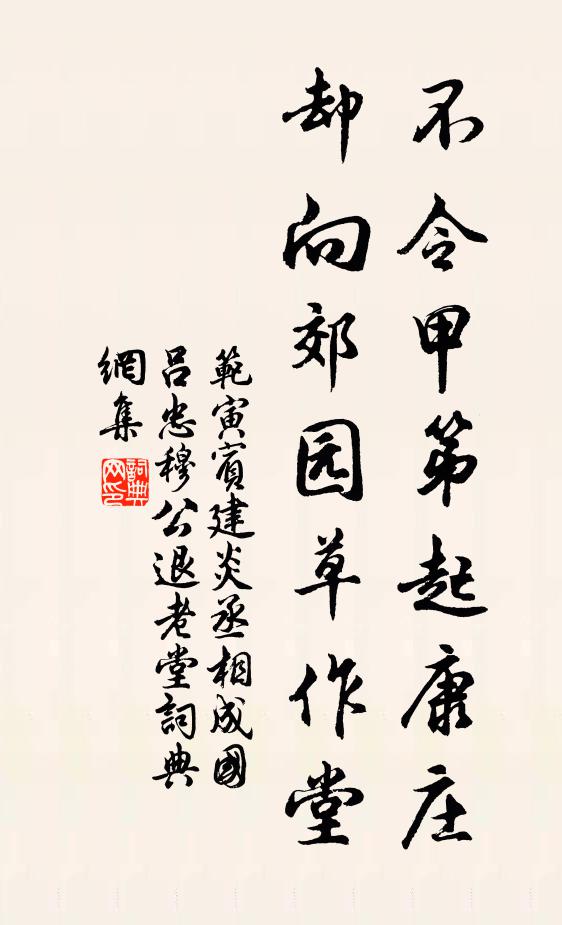 不令甲第起康庄
却向郊园草作堂
範寅賓建炎丞相成國
吕忠穆公退老堂詞典
網集
詞典网印